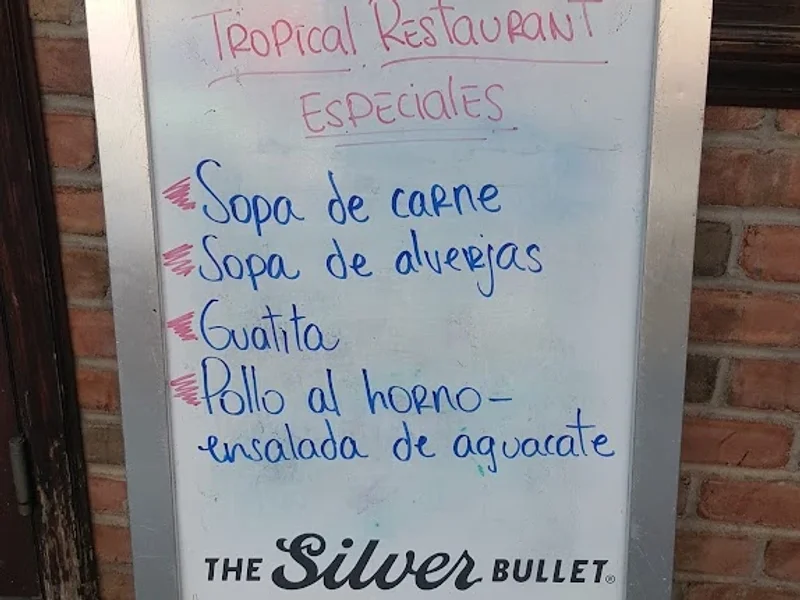 Tropical Restaurant
Especiales
Sopa de carne
Sopa de alverjas
Guatita
Pollo al horno-
ensalada de aguacate
THE Silver BULLET®